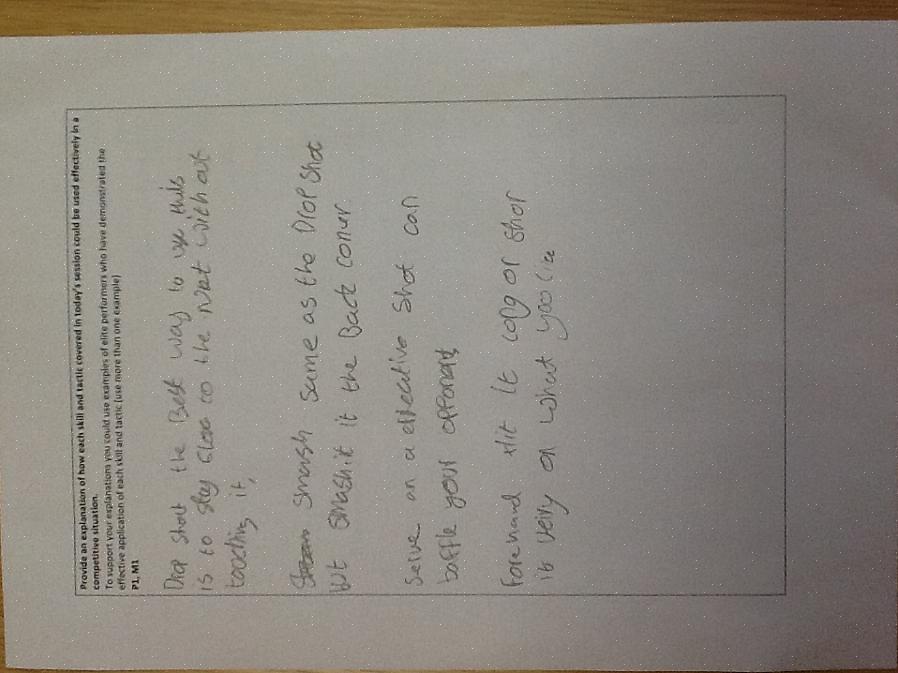 Provide an explanation of how each skill and tactic covered in today's session could be used effectively in a
competitive situation.
To support your explanations you could use examples of elite performers who have demonstrated the
effective application of each skill and tactic (use more than one example)
P1, M1
Drop shot the Best way to use this
is to stay close to the Net with out
touching it,
Smash Same as the Drop Shot
but smash it it the Back conner
Serve on a effecative Shot can
baffle your opponants
Forehand Hit it long or Shor
it very on what yoo like